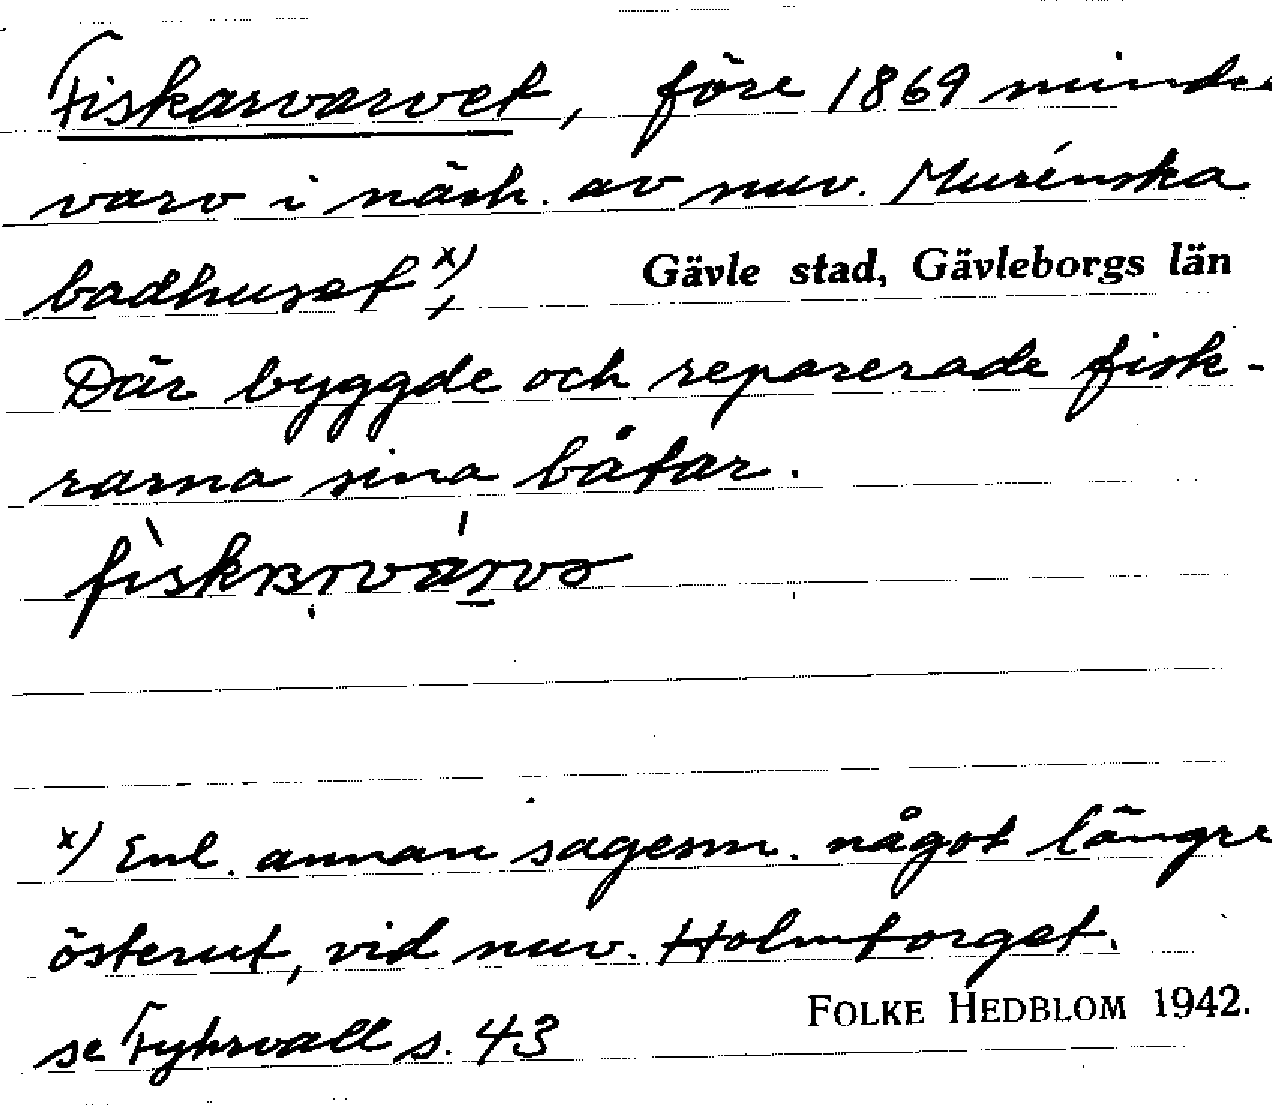 Fiskarvarvet, före 1869 mindre
varv i närh. av nuv. Murénska
badhuset x)
Gävle stad, Gävleborgs län
Där byggde och reparerade fisk-
rarna sina båtar.
x) Enl. annan sagesm. något längre
österut, vid nuv. Holmtorget.
se Fyhrvall s. 43
FOLKE HEDBLOM 1942.